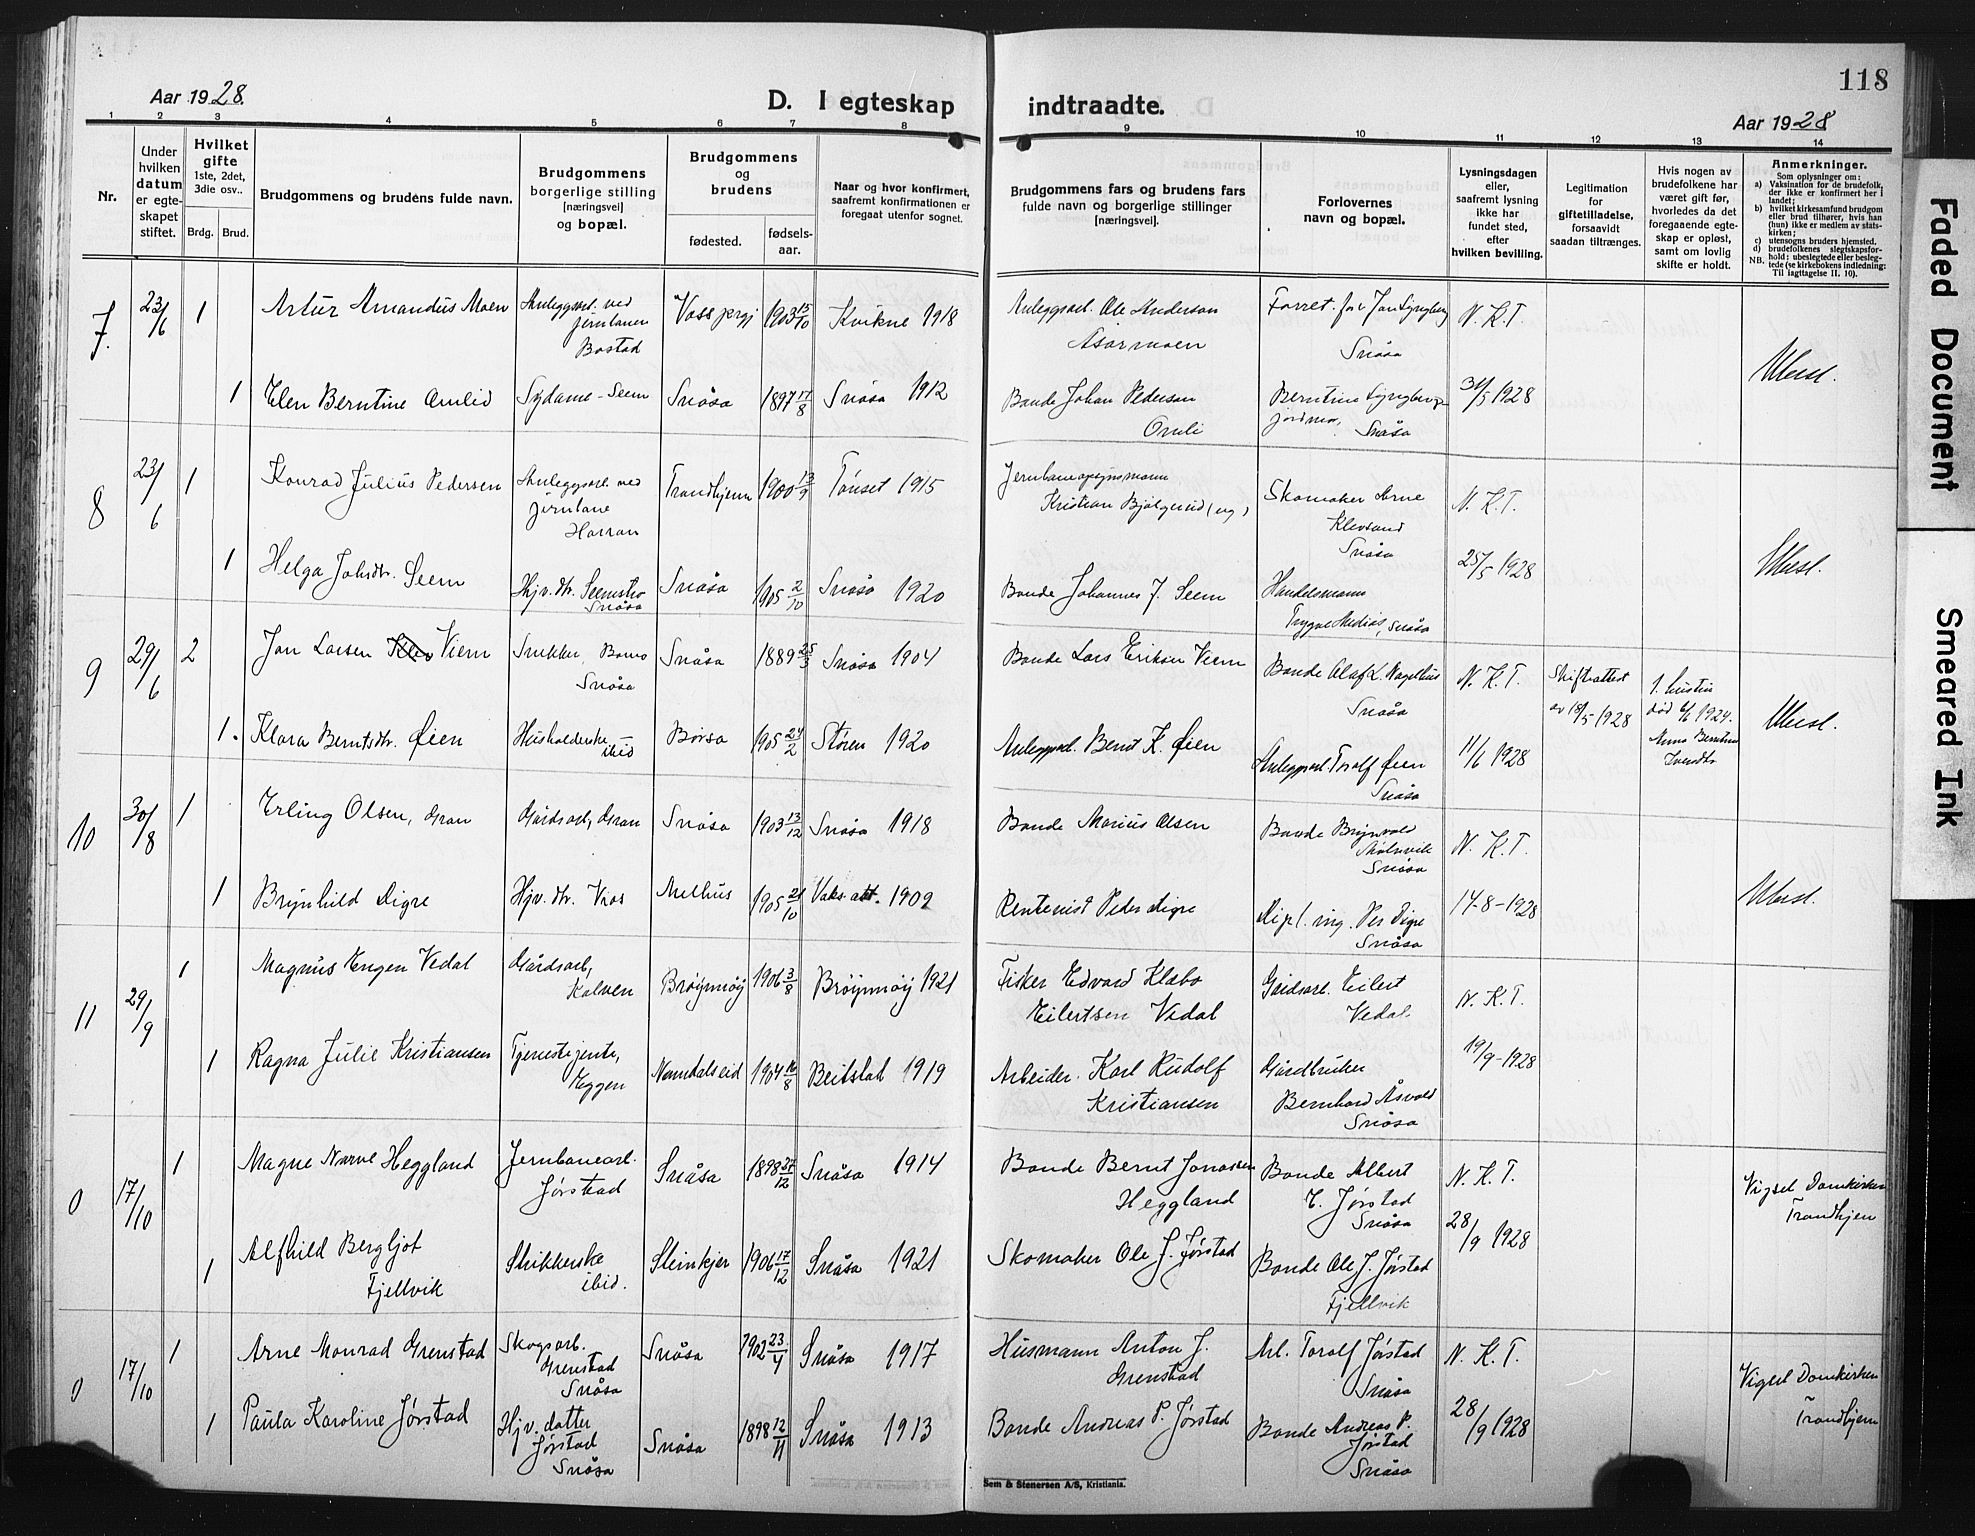 118
Aar 1928.
D. I egteskap indtraadte.
Aar 1928
1 2 3 4 5 6 7 8 9 10 11 12 13 14
Nr.
Under hvilken datum er egteskapet stiftet.
Hvilket gifte 1ste, 2det, 3die osv..
Brdg. Brud.
Brudgommens og brudens fulde navn.
Brudgommens borgerlige stilling [næringsvei] og bopæl.
Brudgommens og brudens
fødested.
fødselsaar.
Naar og hvor konfirmert, saafremt konfirmationen er foregaat utenfor sognet.
Brudgommens fars og brudens fars fulde navn og borgerlige stillinger [næringsvei]
Forlovernes navn og bopæl.
Lysningsdagen eller, saafremt lysning ikke har fundet sted, efter hvilken bevilling.
Legitimation for giftetilladelse, forsaavidt saadan tiltrænges.
Hvis nogen av brudefolkene har været gift før, hvorledes da det foregaaende egteskap er opløst, samt om lovlig skifte er holdt.
Anmerkninger.
Som oplysninger om:
a) Vaksination for de brudefolk, der ikke er konfirmert her i landet;
b) hvilket kirkesamfund brudgom eller brud tilhører, hvis han (hun) ikke er medlem av statskirken;
c) utensogns bruders hjemsted.
d) brudefolkenes slegtskapsforhold: ubeslegtede eller beslegtede (se kirkebokens indledning:
NB. Til iagttagelse II. 10).
7. 23/6 1 Artur Amandus Moen Anleggsarb. ved 1903 15/10 Kvikne 1918 Anleggsarb. Ole Anderson N. K. T.
jernbanen
Snåsa
Ubesl.
1 Elen Berntine Omlid Seem Snåsa 1897 17/8 Snåsa 1912 Bonde Johan Pederson 31/5 1928
Omli jordmor, Snåsa
8 23/6 1 Konrad Julius Pedersen Anleggsarb. ved Trondhjem 1900 13/9 Tönset 1915 Skomaker Arne N. K. T.
jernbane Kristian
Harran Snåsa
Ubesl.
1 Helga Johsdtr. Seem Hjv. dtr. Seemstro Snåsa 1905 2/10 Snåsa 1920 Bonde Johannes J. Seem Handelsmann 25/5 1928
Snåsa Trygve Medias, Snåsa
9 29/6 2 Jon Larsen Viem Snekker, Snåsa 1889 25/3 Snåsa 1904 Bonde Lars Eriksen Viem Bonde Olaf L. Nagelhus N. K. T. Skifteattest
Snåsa Snåsa av 18/5 1928 død 6/6 1924.
Ubesl.
1. Klara Berntsdtr. Øien Husholderske ibid Børsa 1905 24/2 Støren 1920 Anleggsarb. Bernt K. Øien Anleggsarb. Torolf Øien 11/6 1928
Snåsa
10 30/8 1 Erling Olsen, Gran Gårdsarb, Gran Snåsa 1903 13/12 Snåsa 1918 Bonde Marius Olsen Bonde Brynvald N. K. T.
Snåsa
Ubesl.
1 Brynhild Digre Hjv. dtr. Melhus 1905 21/10 Vaks. att. 1909 Rentenist Peder Digre Dipl. ing. Per Digre 14-8-1928
Snåsa
11 29/9 1 Magnus Engen Vedal Gårdsarb, Brøynnøy 1906 3/8 Brøynnøy 1921 Fisker Edvard Klabo Gårdsarb. Eilert N. K. T.
Kalven Eilertsen Vedal Vedal.
1 Ragna Julie Kristiansen Tjenestejente, Namdalseid 1904 16/8 Beitstad 1919 Arbeider. Karl Rudolf Gårdbruker 19/9-1928
Eggen Kristiansen Bernhard Åsvold
Snåsa
0 17/10 1 Magne Narve Heggland Jernbanearb. Snåsa 1898 27/12 Snåsa 1914 Bonde Bernt Jonassen Bonde Albert N. K. T. Vigsel Domkirken
Jørstad Heggland E. Jørstad Trondhjem
Snåsa
1 Alfhild Bergljot Strikkerske Steinkjer 1906 17/12 Snåsa 1921 Skomaker Ole J. Jørstad Bonde Ole J. Jørstad 28/9 1928
Fjellvik ibid. Fjellvik
0 17/10 1 Arne Monrad Grenstad Skogsarb. Snåsa 1902 23/4 Snåsa 1917 Husmann Anton J. Arb. Torolf Jørstad N. K. T. Vigsel Domkirken
Grenstad Grenstad Snåsa Trondhjem
Snåsa
1 Paula Karoline Jørstad Hjv. datter Snåsa 1898 12/11 Snåsa 1913 Bonde Andreas P. Jørstad Bonde Andreas P. 28/9 1928
Jørstad Jørstad
Snåsa Snåsa
Sem & Stenersen A/S, Kristiania.
Faded Document
Smeared Ink